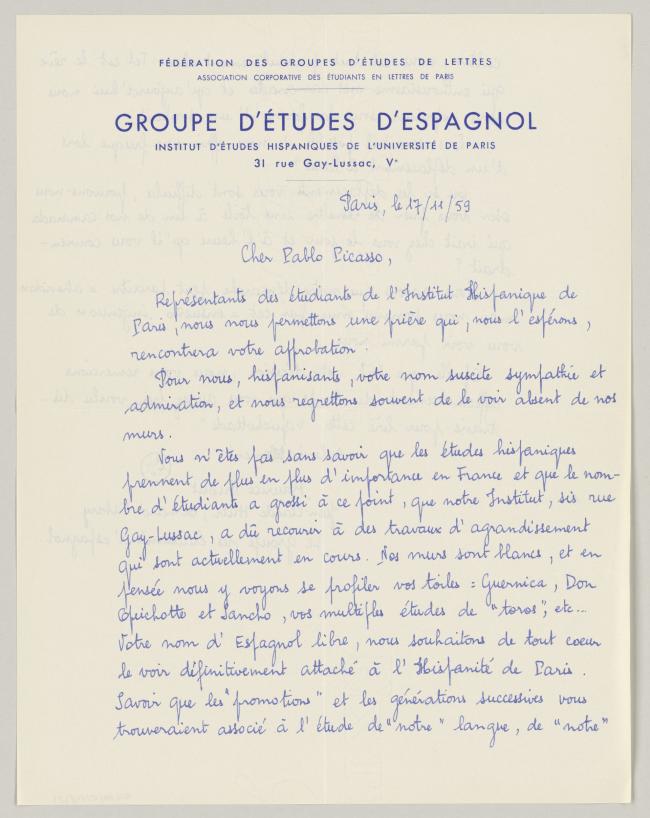 FÉDÉRATION DES GROUPES D'ÉTUDES DE LETTRES
ASSOCIATION CORPORATIVE DES ÉTUDIANTS EN LETTRES DE PARIS
GROUPE D'ÉTUDES D'ESPAGNOL
INSTITUT D'ÉTUDES HISPANIQUES DE L'UNIVERSITÉ DE PARIS
31 rue Gay-Lussac, Ve
Paris, le 17/11/59
Cher Pablo Picasso,
Représentants des étudiants de l'Institut Hispanique de
Paris, nous nous permettons une prière qui, nous l'espérons,
rencontrera votre approbation.
Pour nous, hispanisants, votre nom suscite sympathie et
admiration, et nous regrettons souvent de le voir absent de nos
murs.
Vous n'êtes pas sans savoir que les études hispaniques
prennent de plus en plus d'importance en France et que le nom-
bre d'étudiants a grossi à ce point, que notre Institut, sis rue
Gay-Lussac, a dû recourir à des travaux d'agrandissement
qui sont actuellement en cours. Nos murs sont blancs, et en
pensée nous y voyons se profiler vos toiles : Guernica, Don
Quichotte et Sancho, vos multiples études de "toros", etc...
Votre nom d'Espagnol libre, nous souhaitons de tout coeur
le voir définitivement attaché à l'Hispanité de Paris.
Savoir que les "promotions" et les générations successives vous
trouveraient associé à l'étude de "notre" langue, de "notre"